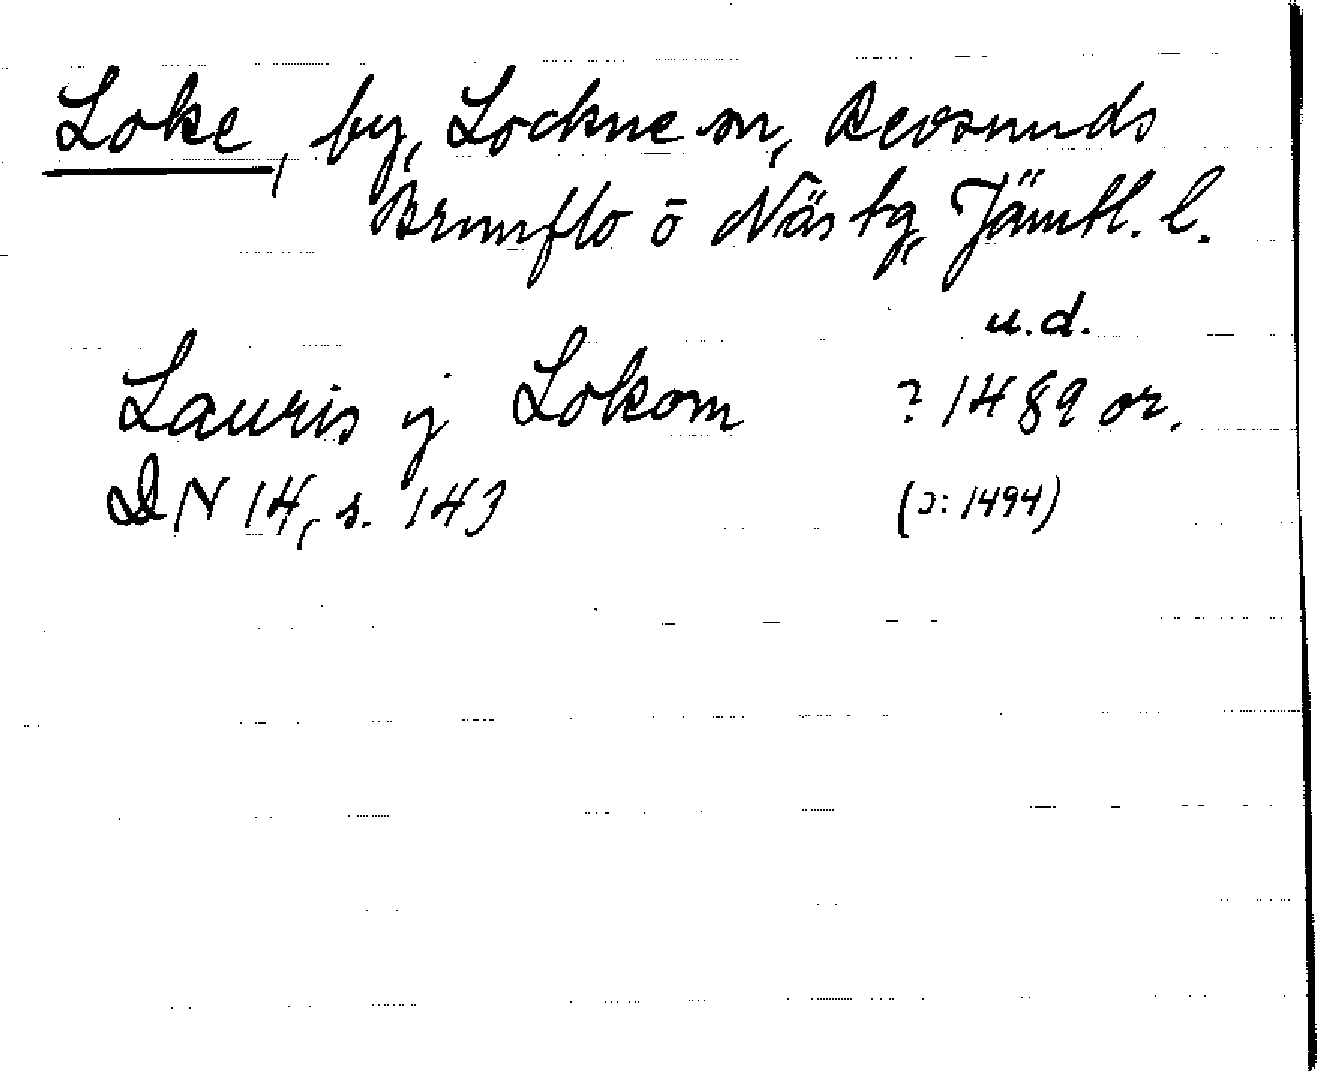 Loke, by, Lockne sn, Revsunds
Brunflo o Näs tg, Jämtl. l.
u.d.
Lauris ij Lokom ? 1489 or.
DN 14, s. 143 (ɔ: 1494)